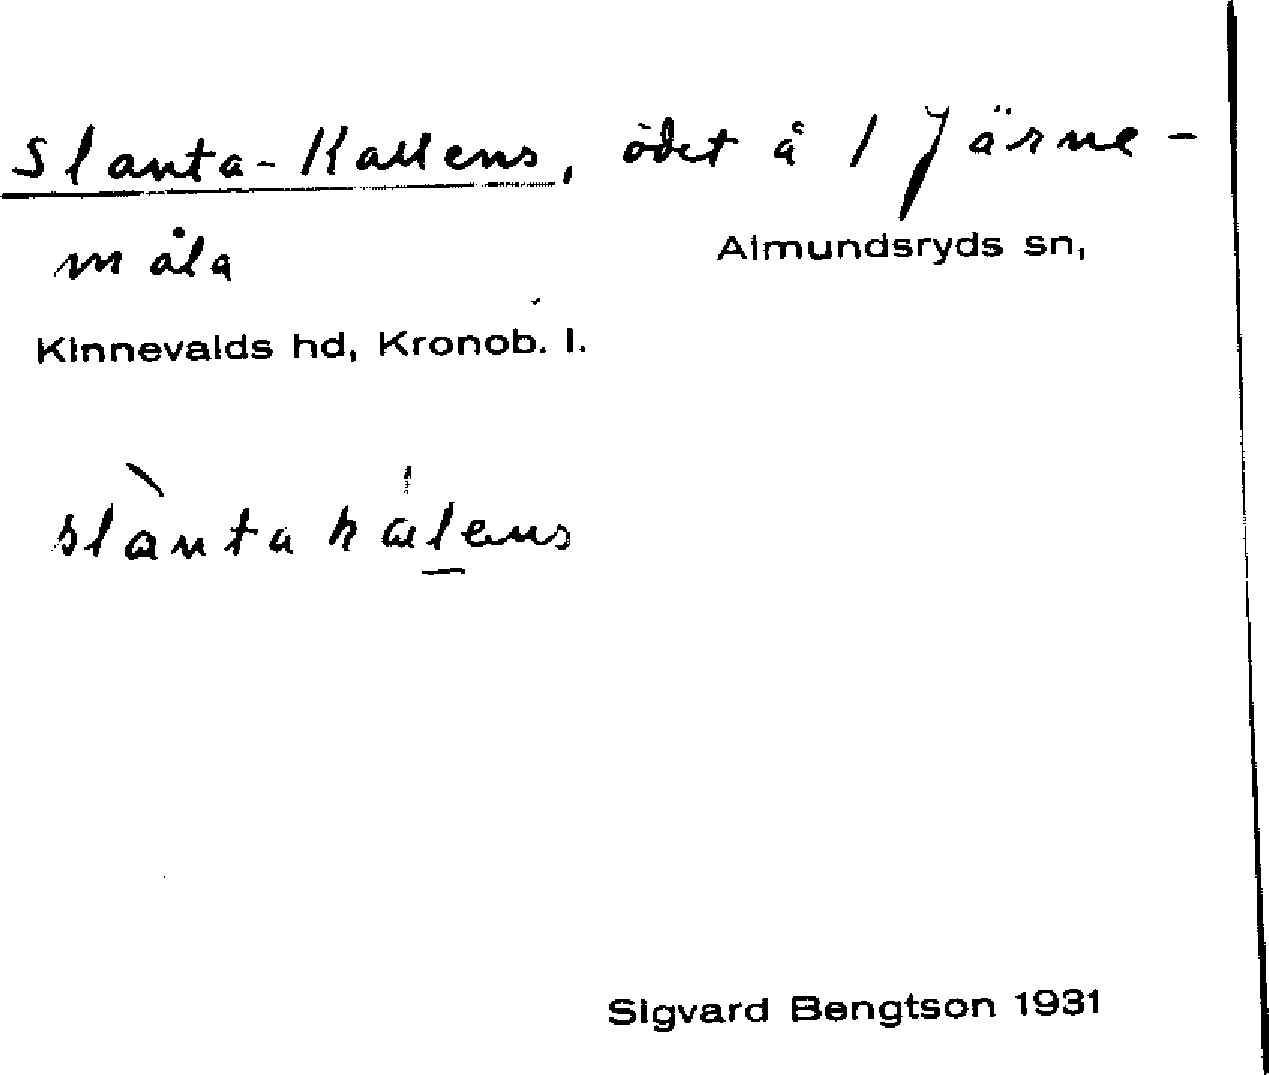 Slanta-Kallens, ödet å 1 Järne-
måla Almundsryds sn,
Kinnevalds hd, Kronob. l.
slànta kálens
Sigvard Bengtson 1931